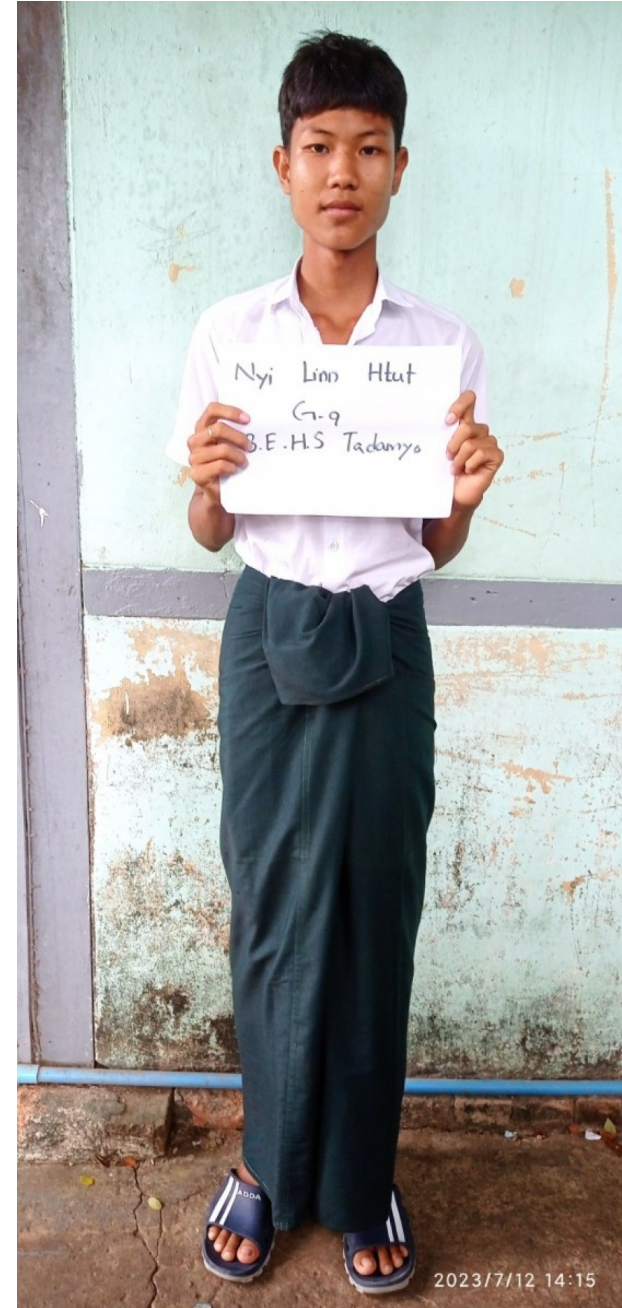 Nyi Linn Htut
G-9
B.E.H.S Tadamyo
ADDA
2023/7/12 14:15